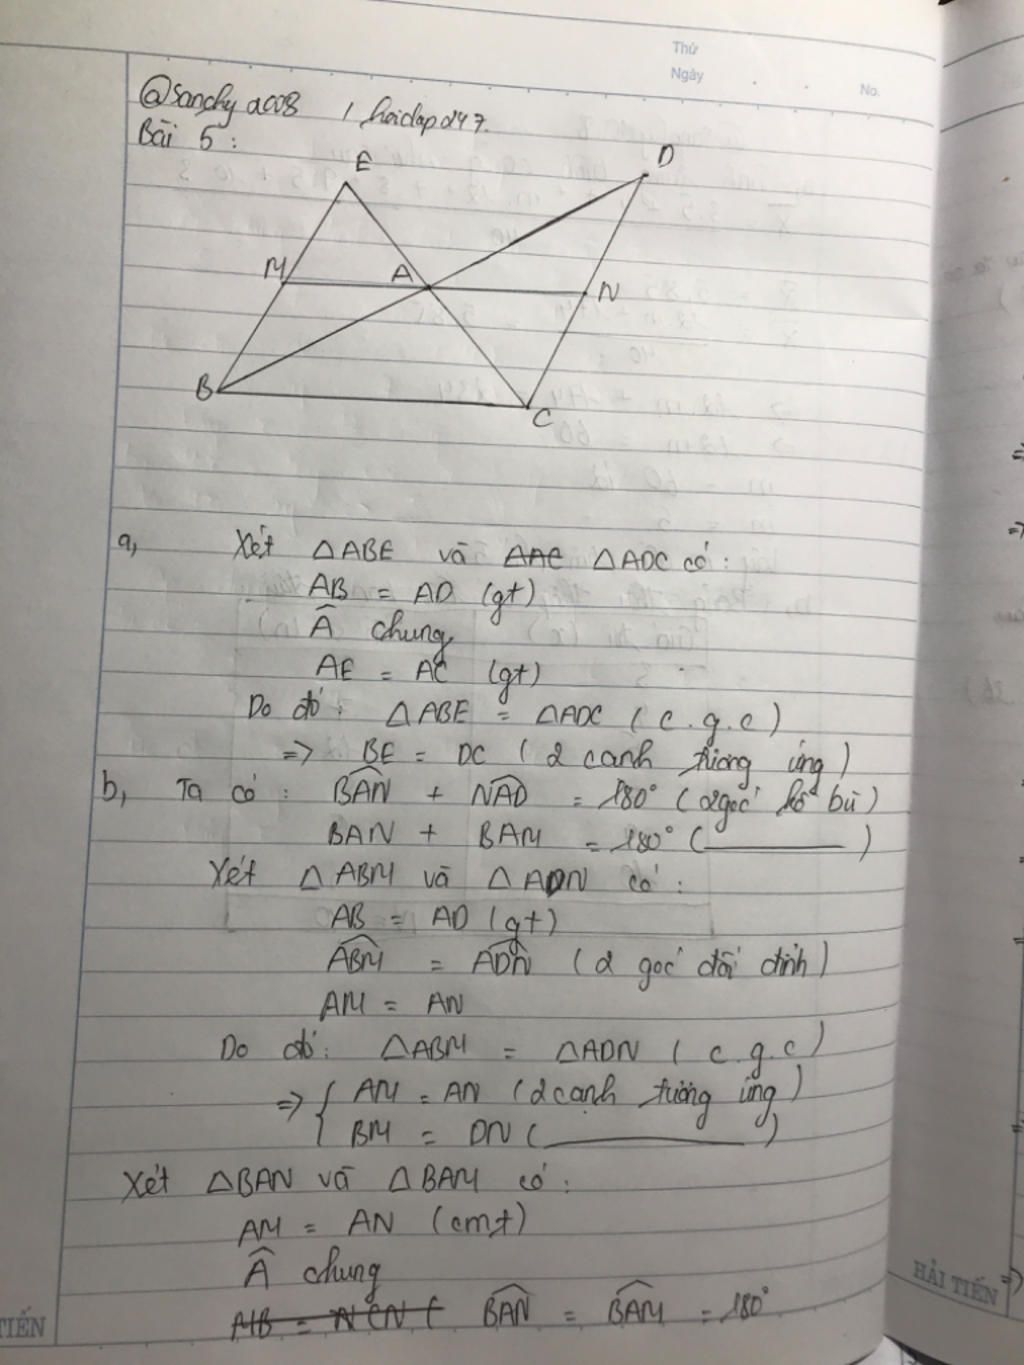 Thứ
Ngày
No.
@sanchy2008 / hoidap247.
Bài 5:
E
D
M
A
N
B
C
a, Xét △ABE và △ADC có:
AB = AD (gt)
Â chung
AE = AC (gt)
Do đó: △ABE = △ADC (c.g.c)
=> BE = DC (2 cạnh tương ứng)
b, Ta có: BAN + NAD = 180° (2 góc kề bù)
BAN + BAM = 180° (______)
Xét △ABM và △ADN có:
AB = AD (gt)
ABM = ADN (2 góc đối đỉnh)
AM = AN
Do đó: △ABM = △ADN (c.g.c)
=> { AM = AN (2 cạnh tương ứng)
BM = DN (______)
Xét △BAN và △BAM có:
AM = AN (cmt)
Â chung
BAN = BAM = 180°
HẢI TIẾN
TIẾN